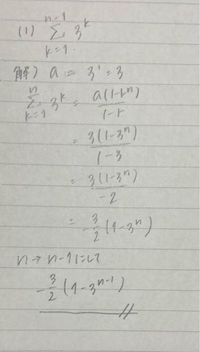 (1) n-1 Σ k=1 3^k
解) a = 3^1 = 3
n Σ k=1 3^k = a(1-r^n) / 1-r
= 3(1-3^n) / 1-3
= 3(1-3^n) / -2
= -3/2 (1-3^n)
n → n-1にして
-3/2 (1-3^{n-1})